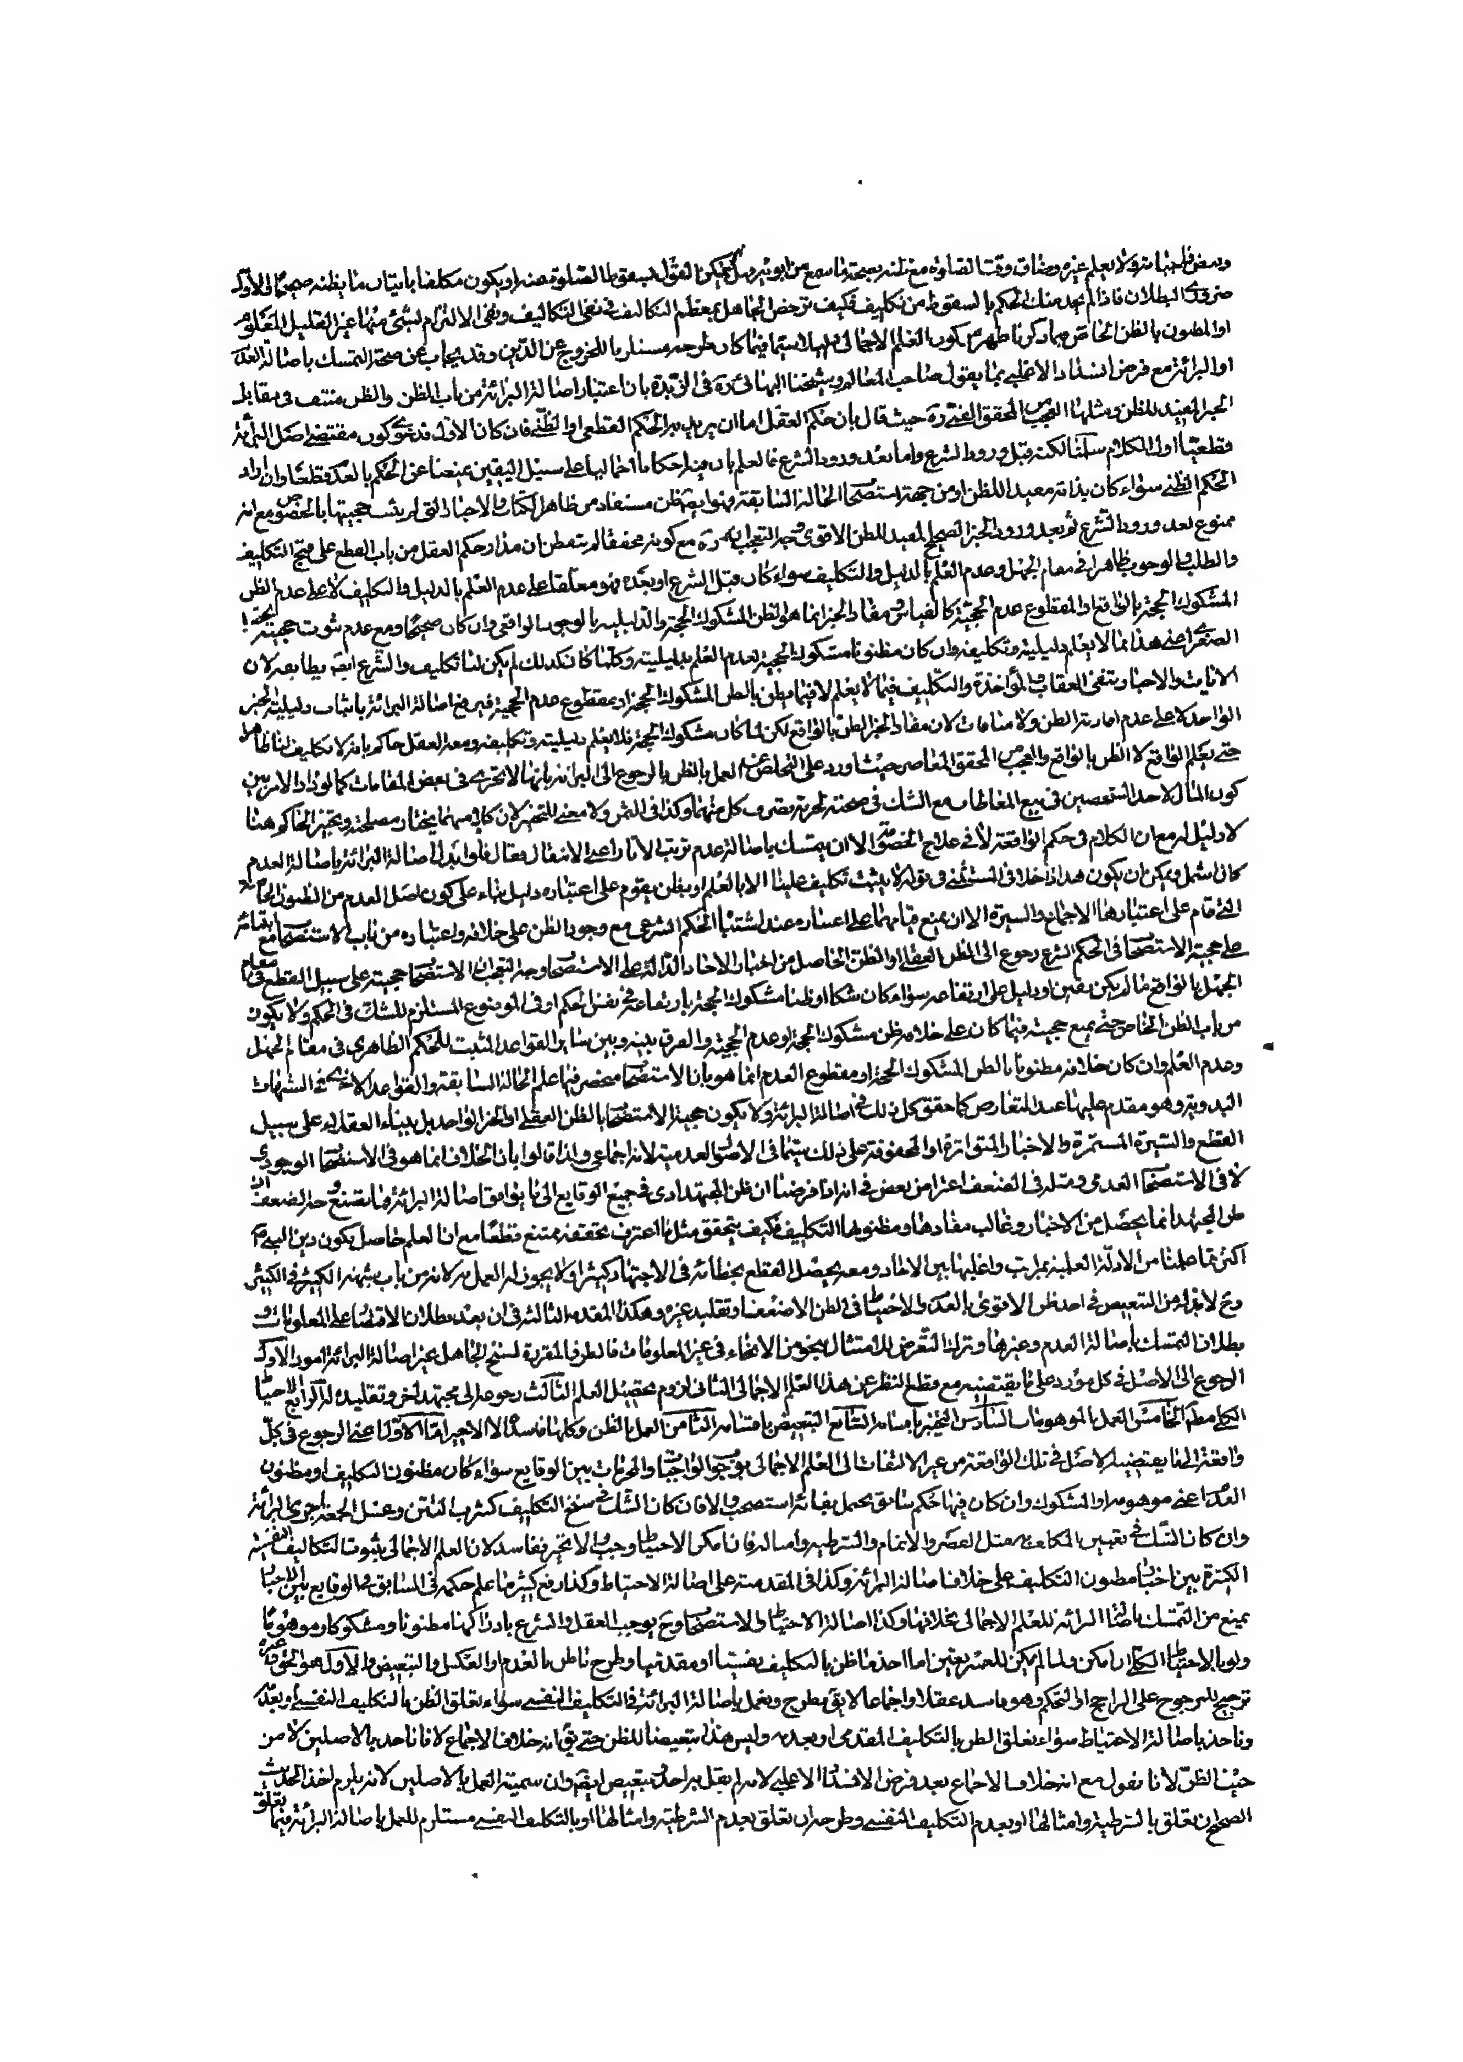 وبعض فاجتها ولا يعلم غيره وضاق وقت الصلوة مع ظنه بصحة ما سمع من ابويه وهل يمكن القول بسقوط الصلوة عنه او يكون مكلفا باتيان ما يظنه صحيحا الاول
ضروري البطلان فاذا لم نجد منك الحكم بالسقوط من تكاليف فكيف ترخص الجاهل بمعظم التكاليف في نفى التكاليف ونفى الالتزام لشئ منها غير القليل المعلوم
او المظنون بالظن الخاص ومما ذكرنا ظهر كون العلم الاجمالى لا سيما فيما كان طرحه مستلزما للخروج عن الدين وقد يجاب عن صحة التمسك باصالة العدم
او البرائة مع فرض انسداد الاغلبى بما يقول صاحب المعالم وشيخنا البهائى ره في الزبدة بان اعتبار اصالة البرائة من باب الظن والظن منتف في مقابل
الخبر المفيد للظن ومثلهما العجب من المحقق القمى ره حيث قال بان حكم العقل اما ان يريد به الحكم القطعى او الظنى فان كان الاول فدعوى كون مقتضى اصل البرائة
قطعيا اول الكلام سلمنا لكنه قبل ورود الشرع واما بعد ورود الشرع فالعلم بان فيه احكاما اجمالية على سبيل اليقين يمنعنا عن الحكم بالعدم قطعا وان اراد
الحكم الظنى سواء كان بذاته مفيدا للظن او من جهة استصحاب الحالة السابقة فهو ايضا ظن مستفاد من ظاهر الكتاب والاخبار التى لم يثبت حجيتها بالخصوص مع انه
ممنوع بعد ورود الشرع ثم بعد ورود الخبر الصحيح المفيد للظن الاقوى وجه التعجب انه ره مع كونه محققا لم يتفطن ان مذارحكم العقل من باب القطع على قبح التكليف
والطلب والوجوب ظاهرا في مقام الجهل وعدم العلم بالدليل والتكليف سواء كان قبل الشرع او بعده فهو معلقا على عدم العلم بالدليل والتكليف لا على عدم الظن
المشكوك الحجية بالواقع او المقطوع عدم الحجية كالقياس ومفاد الخبر انما هو الظن المشكوك الحجية والدليلية بالوجوب الواقعى وان كان صحيحا ومع عدم ثبوت حجية
هذا مما لا يعلم دليليته وتكليفه وان كان مظنونا مشكوك الحجية لعدم العلم بدليليته وكلما كان كذلك لم يكن لنا تكليف والشرع ايضا يطابقه لان
الايات والاخبار ينفى العقاب والمؤاخذة والتكليف فيما لا يعلم لا فيما يظن بالظن المشكوك الحجية او بمقطوع عدم الحجية فيرفع اصالة البرائة باثبات دليلية الخبر
الواحد لا على عدم افادته الظن ولا منافات لان مفاد الخبر الظن بالواقع لكن لما كان مشكوك الحجية فلا يعلم دليليته وتكليفه ومعه العقل حاكم بانه لا تكليف لنا ظاهرا
حتى يعلم الواقع لا الظن بالواقع والعجب من المحقق المعاصر حيث اورد على التخلص عن العمل بالظن بالرجوع الى البرائة بانها لا تجرى في بعض المقامات كما لو دار الامر بين
كون المال لاحد الشخصين في بيع المعاطات مع الشك في صحته لحرمة تصرف كل منهما وكذا في الثمن ولا معنى للتخيير لان كلا منهما يختار مصلحة وتخيير الحاكم هنا
لا دليل له مع ان الكلام في حكم الواقعة لا في علاج الخصومة الا ان يتمسك باصالة عدم ترتب الاثار وعدم الانتقال وقال فلو ابدل اصالة البرائة باصالة العدم
كان اشمل ويمكن ان يكون هذا داخلا في المستثنى في قوله لا يثبت تكليف علينا الا بالعلم او بظن يقوم على اعتباره دليل بناء على كون اصل العدم من الظنون الخاصة
التى قام على اعتبارها الاجماع والسيرة الا ان يمنع قيامهما على اعتباره عند اشتباه الحكم الشرعى مع وجود الظن على خلافه واعتباره من باب الاستصحاب مع
على حجية الاستصحاب في الحكم الشرعى رجوع الى الظن العقلى او الظن الحاصل من اخبار الاحاد الدالة على الاستصحاب وجه التعجب ان الاستصحاب حجيته على سبيل القطع في مقام
الجهل بالواقع ما لم يكن يقين او دليل على ارتفاعه سواء كان شكا او ظنا مشكوك الحجية بارتفاعه في نفس الحكم او في الموضوع المستلزم للشك في الحكم ولا يكون
من باب الظن الخاص حتى يمنع حجيته فيما كان على خلافه ظن مشكوك الحجية او عدم الحجية والفرق بينه وبين سائر القواعد المثبت للحكم الظاهرى في مقام الجهل
وعدم العلم وان كان خلافه مظنونا بالظن المشكوك الحجية او مقطوع العدم انما هو بان الاستصحاب منحصر فيما علم الحالة السابقة والقواعد الاخر في الشبهات
البدوية وهو مقدم عليها عند التعارض كما حقق كل ذلك في اصالة البرائة ولا يكون حجية الاستصحاب بالظن العقلى او الخبر الواحد بل ببناء العقلاء على سبيل
القطع والسيرة المستمرة والاخبار المتواترة او المحفوفة على ذلك سيما في الاصول العدمية لانه اجماعى ولذا قالوا بان الخلاف انما هو في الاستصحاب الوجودى
لا في الاستصحاب العدمى ومثله في الضعف اعتراض بعض في انه اذا فرضنا ان ظن المجتهد ادى في جميع الوقايع الى ما يوافق اصالة البرائة فما تصنع وجه الضعف ان
ظن المجتهد انما يحصل من الاخبار وغالب مفادها ومظنونها التكاليف فكيف يتحقق مثل ما اعترف بتحققه ممتنع قطعا مع ان العلم حاصل بكون دين النبى ص
اكثر مما ظننا من الادلة العلمية بمراتب واغلبها بين الاحاد ومعه يحصل القطع بخطائه في الاجتهاد كثيرا ولا يجوز له العمل به لانه من باب شبهة الكثير في الكثير
وح لا بد له من التبعيض في احد ظن الاقوى بالعدم والاحتياط في الظن الاضعف او تقليد غيره وهكذا المقدمة الثالثة في ان بعد بطلان الاقتصار على المعلومات و
بطلان التمسك باصالة العدم وغيرها وترك التعرض للامتثال بنحو من الانحاء في غير المعلومات فالطرق المقررة لسنخ الجاهل غير اصالة البرائة امور الاول
الرجوع الى الاصل في كل مورد على ما يقتضيه مع قطع النظر عن هذا العلم الاجمالى الثانى لزوم تحصيل العلم الثالث رجوعه الى مجتهد اخر وتقليده له الرابع الاحتياط
الكلى مطلقا الخامس العمل بالموهومات السادس التخيير باقسامه السابع التبعيض باقسامه الثامن العمل بالظن وكلها فاسدة الا الاخير اما الاول اعنى الرجوع في كل
واقعة الى ما يقتضيه الاصل في تلك الواقعة من غير الالتفات الى العلم الاجمالى بوجود الواجبات والمحرمات بين الوقايع سواء كان مظنون التكليف او مظنون
العدم اعنى موهومه او المشكوك وان كان فيها حكم سابق يحتمل بقائه استصحب والا فان كان الشك في سنخ التكليف كشرب التتن وغسل الجمعة اجرى البرائة
وان كان الشك في تعيين المكلف به مثل القصر والاتمام والشرطية وامثاله فان امكن الاحتياط وجب والا تخير ففاسد لان العلم الاجمالى بثبوت التكاليف النفسية
الكثيرة بين اخبار مظنون التكليف على خلاف اصالة البرائة وكذا في المقدمية على اصالة الاحتياط وكذا رفع كثير مما علم حكمه في السابق في الوقايع بين الاخبار
يمنع من التمسك باصالة البرائة للعلم الاجمالى بخلافها وكذا اصالة الاحتياط والاستصحاب وح يوجب العقل والشرع بادراكها مظنونا ومشكوكا وموهوما
ولو بالاحتياط الكلى ان امكن ولما لم يمكن للعسر يعين اما اخذ ما ظن بالتكليف نفسيا او مقدميا وطرح ما ظن بالعدم او العكس والتبعيض والاول هو الحق وفى غيره
ترجيح للمرجوح على الراجح او التحكم وهو فاسد عقلا واجماعا لا يق نطرح ونعمل باصالة البرائة في التكليف النفسى سواء تعلق الظن بالتكليف النفسى او بعدمه
وناخذ باصالة الاحتياط سواء تعلق الظن بالتكليف المقدمى او بعدمه وليس هذا تبعيضا للظن حتى يق انه خلاف الاجماع لانا ناخذ بالاصلين لا من
حيث الظن لانا نقول مع انه خلاف الاجماع بعد فرض الانسداد الاغلبى لانه لم يقل به احد تبعيض ايضا وان سميته العمل بالاصلين لانه يلزم اخذ الحديث
الصحيح ان تعلق بالشرطية وامثالها او بعدم التكليف النفسى وطرحه ان تعلق بعدم الشرطية وامثالها او بالتكليف النفسى مستلزم للعمل باصالة البرائة فيما تعلق